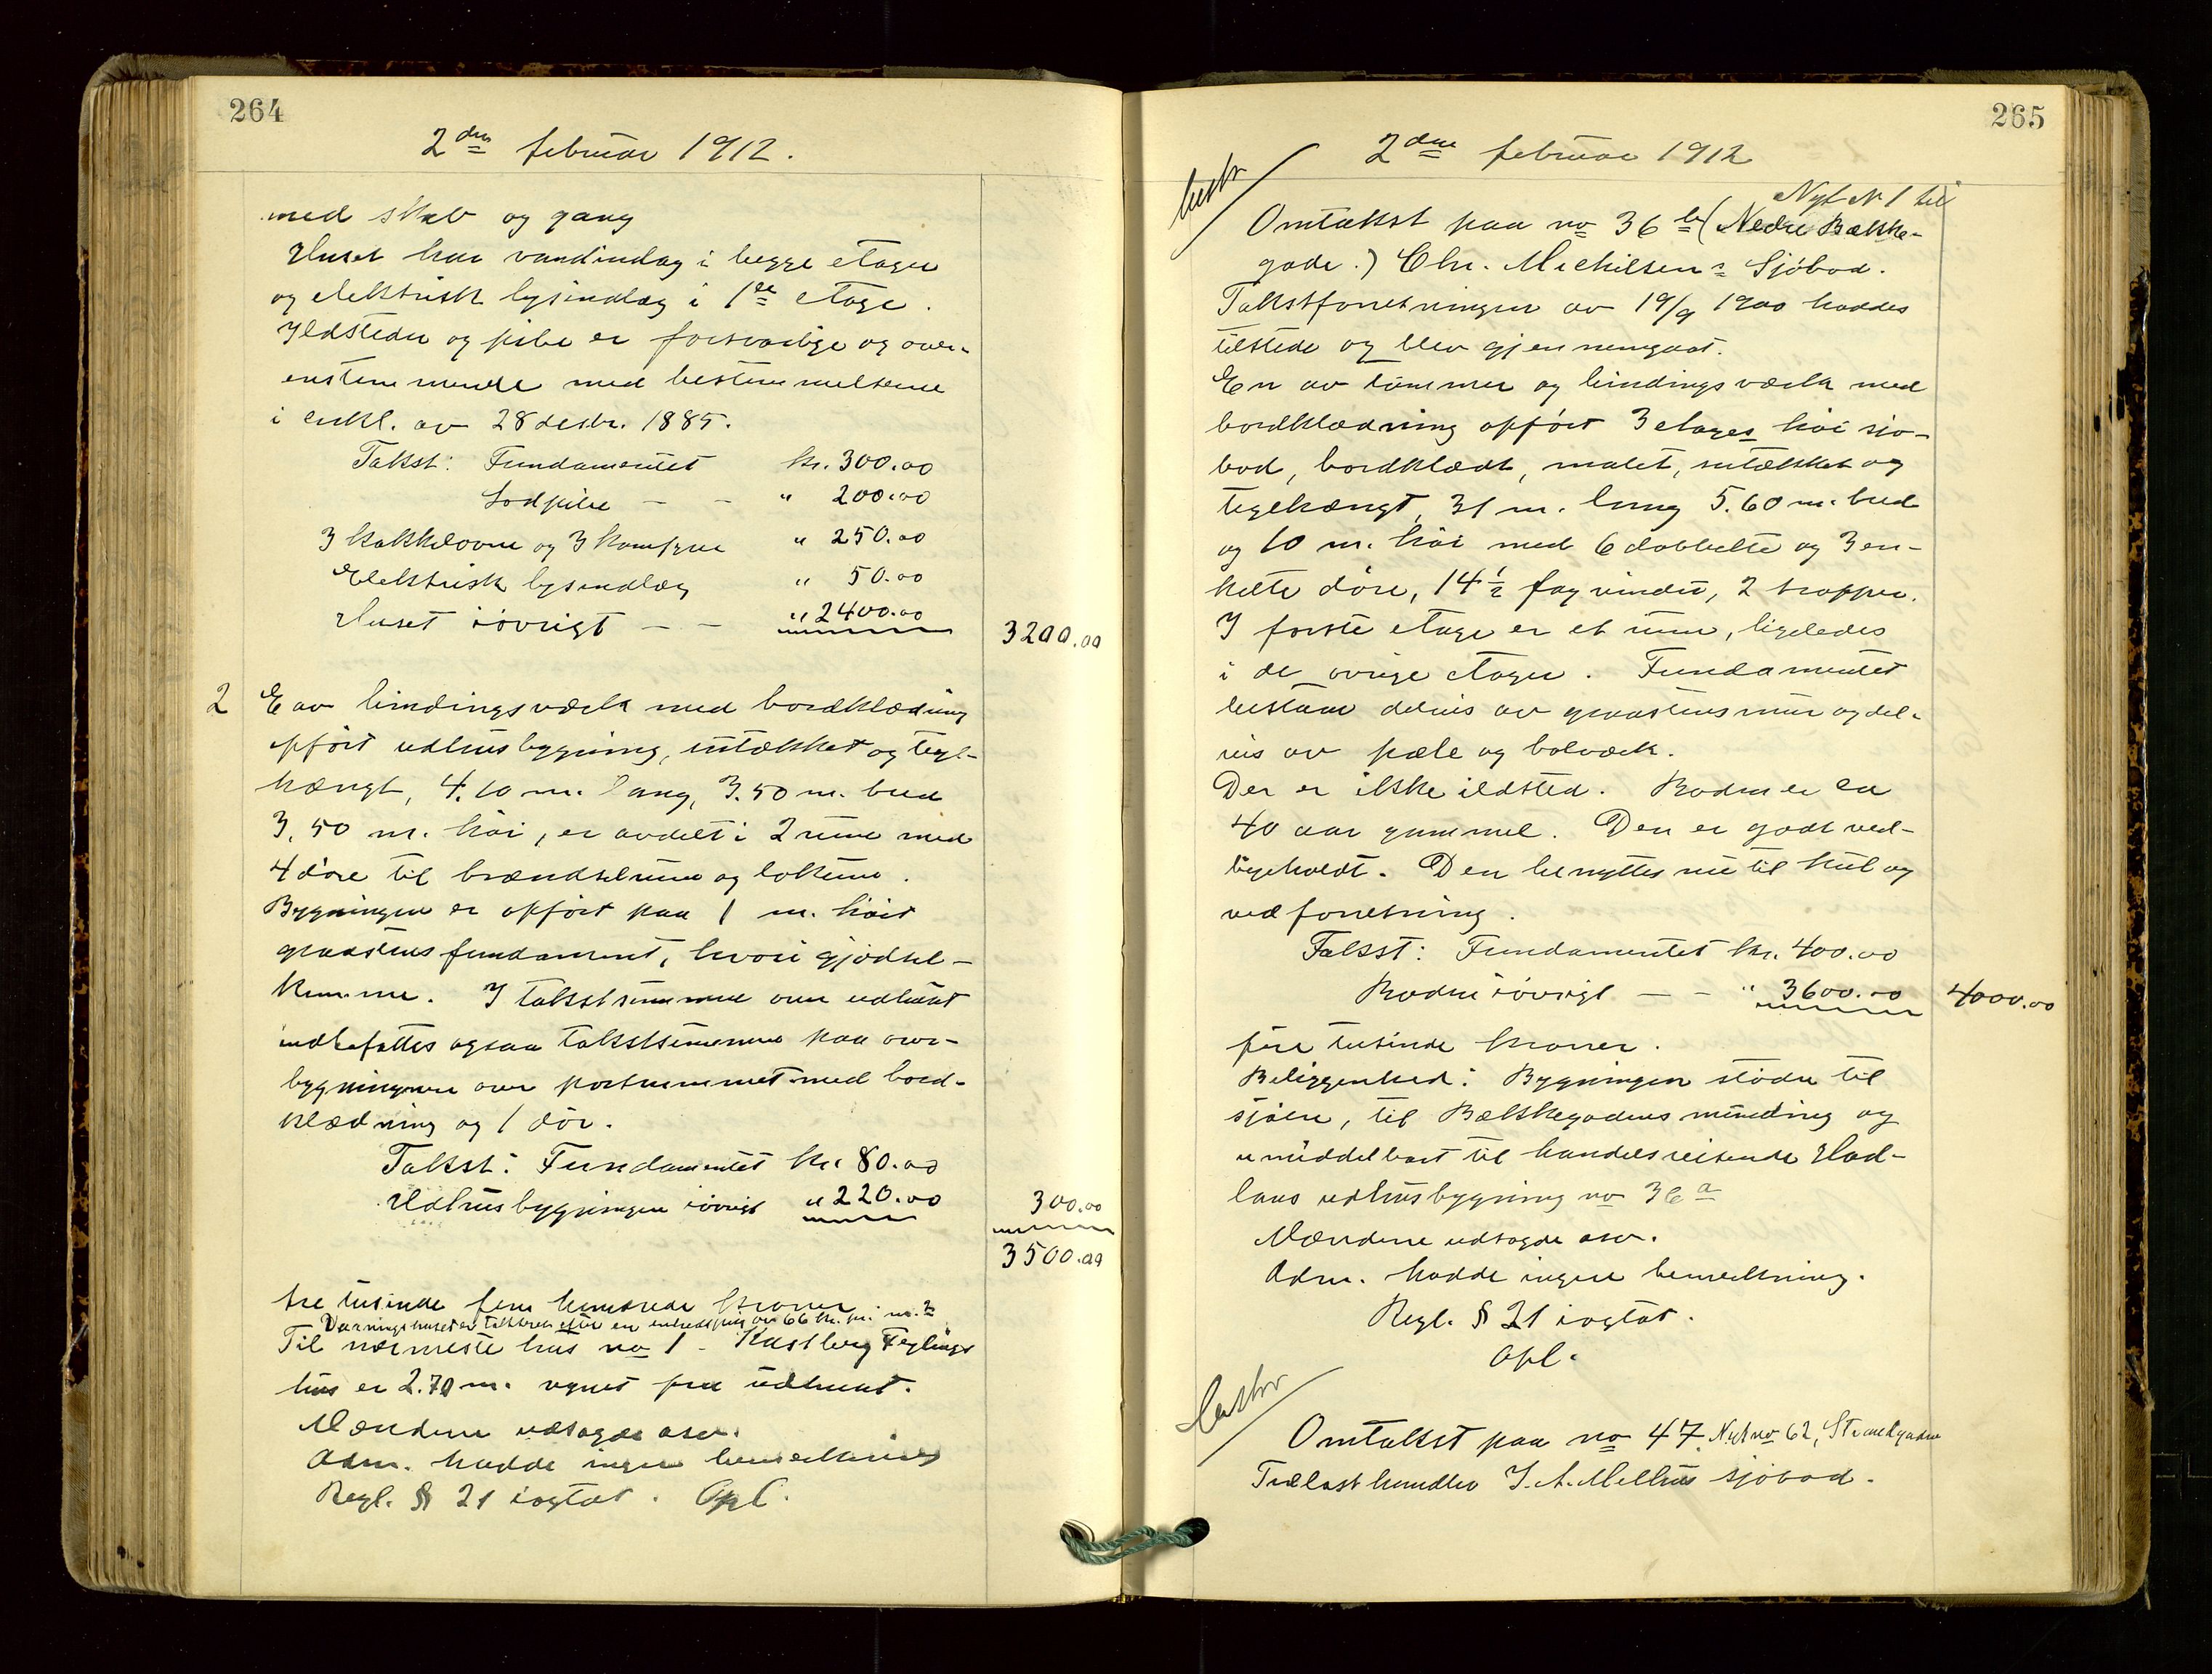 264
2den februar 1912.
med skab og gang
Huset har vandindlag i begge etager
og elektrisk lysindlæg i 1ste etage.
Ildsteder og pibe er forsvarlige og over-
enstemmende med bestemmelserne
i cirkl. av 28 desbr. 1885.
Takst: Fundamentet kr. 300.00
Lodpibe — — " 200.00
3 kakkelovne og 3 komfyrer " 250.00
Elektrisk lysindlæg " 50.00
Huset iøvrigt — — " 2400.00 3200.00
2 E av bindingsværk med bordklædning
opført udhusbygning, sutækket og tegl-
hængt, 4.10 m. lang, 3.50 m. bred
3,50 m. høi, er avdelt i 2 rum med
4 døre til brændselrum og lokum.
Bygningen er opført paa 1 m. høit
graastens fundament, hvori gjødsel-
kumme. I takstsummen over udhuset
indbefattes ogsaa takstsummen paa over-
bygningen over portrummet med bord-
klædning og 1 dør.
Takst: Fundamentet kr. 80.00
Udhusbygningen iøvrigt " 220.00 300.00
3500.00
tre tusinde fem hundrede kroner
Vaaningshuset er takseret efter en enhedspris av 66 kr. pr. m.2
Til nærmeste hus no 1 - Kastberg Teglings
hus er 2.70 m. regnet fra udhuset.
Mændene udsagde osv.
Adm. hadde ingen bemerkning
Regl. § 21 iagtat. Opl.
265
2den februar 1912
Nyt No 1 til
Omtakst paa no 36 b (Nedre Bække-
gade.) Chr. Michelsens Sjøbod.
Takstforretningen av 19/9 1900 haddes
tilstede og blev gjennemgaat.
En av tømmer og bindingsværk med
bordklædning opført 3 etages høi sjø-
bod, bordklædt, malet, sutækket og
teglhængt, 31 m. lang 5.60 m. bred
og 10 m. høi med 6 dobbelte og 3 en-
kelte døre, 14 1/2 fag vinduer, 2 trapper.
I første etage er et rum, ligeledes
i de øvrige etager. Fundamentet
bestaar delvis av graastensmur og del-
vis av pæle og bolværk.
Der er ikke ildsted. Boden er ca
40 aar gammel. Den er godt ved-
ligeholdt. Den benyttes nu til kul og
vedforretning.
Takst: Fundamentet kr. 400.00
Boden iøvrigt — — " 3600.00 4000.00
fire tusinde kroner.
Beliggenhed: Bygningen støder til
sjøen, til Bækkegadens munding og
umiddelbart til handelsreisende Had-
lans udhusbygning no 36 a
Mændene udsagde osv.
Adm. hadde ingen bemerkning.
Regl. § 21 iagtat.
Opl.
Omtakst paa no 47 Nyt no 62, Strandgaden
Trælasthandler J. A. Mellius sjøbod.